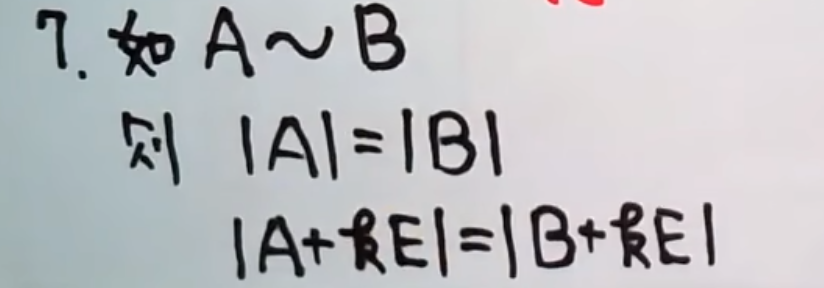 7. 如 A~B
则 |A|=|B|
|A+kE|=|B+kE|